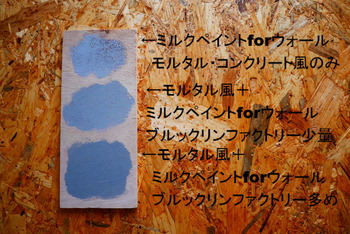 ←ミルクペイントforウォール
モルタル・コンクリート風のみ
←モルタル風＋
ミルクペイントforウォール
ブルックリンファクトリー少量
←モルタル風＋
ミルクペイントforウォール
ブルックリンファクトリー多め